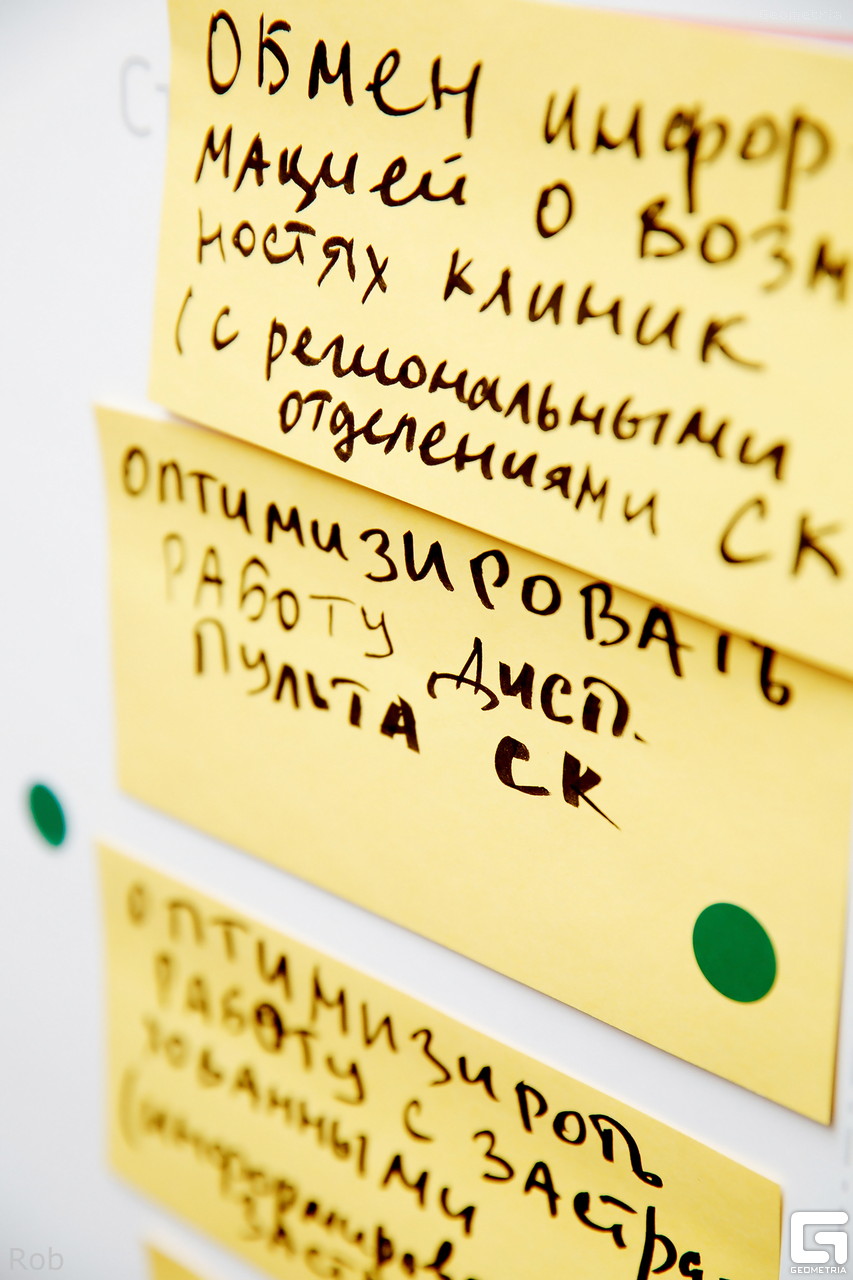 Обмен инфор-
мацией о возм
ностях клиник
(с региональными
отделениями СК
Оптимизировать
работу дисп.
пульта СК
Оптимизироть
работу с застра-
хованными
Rob
GEOMETRIA